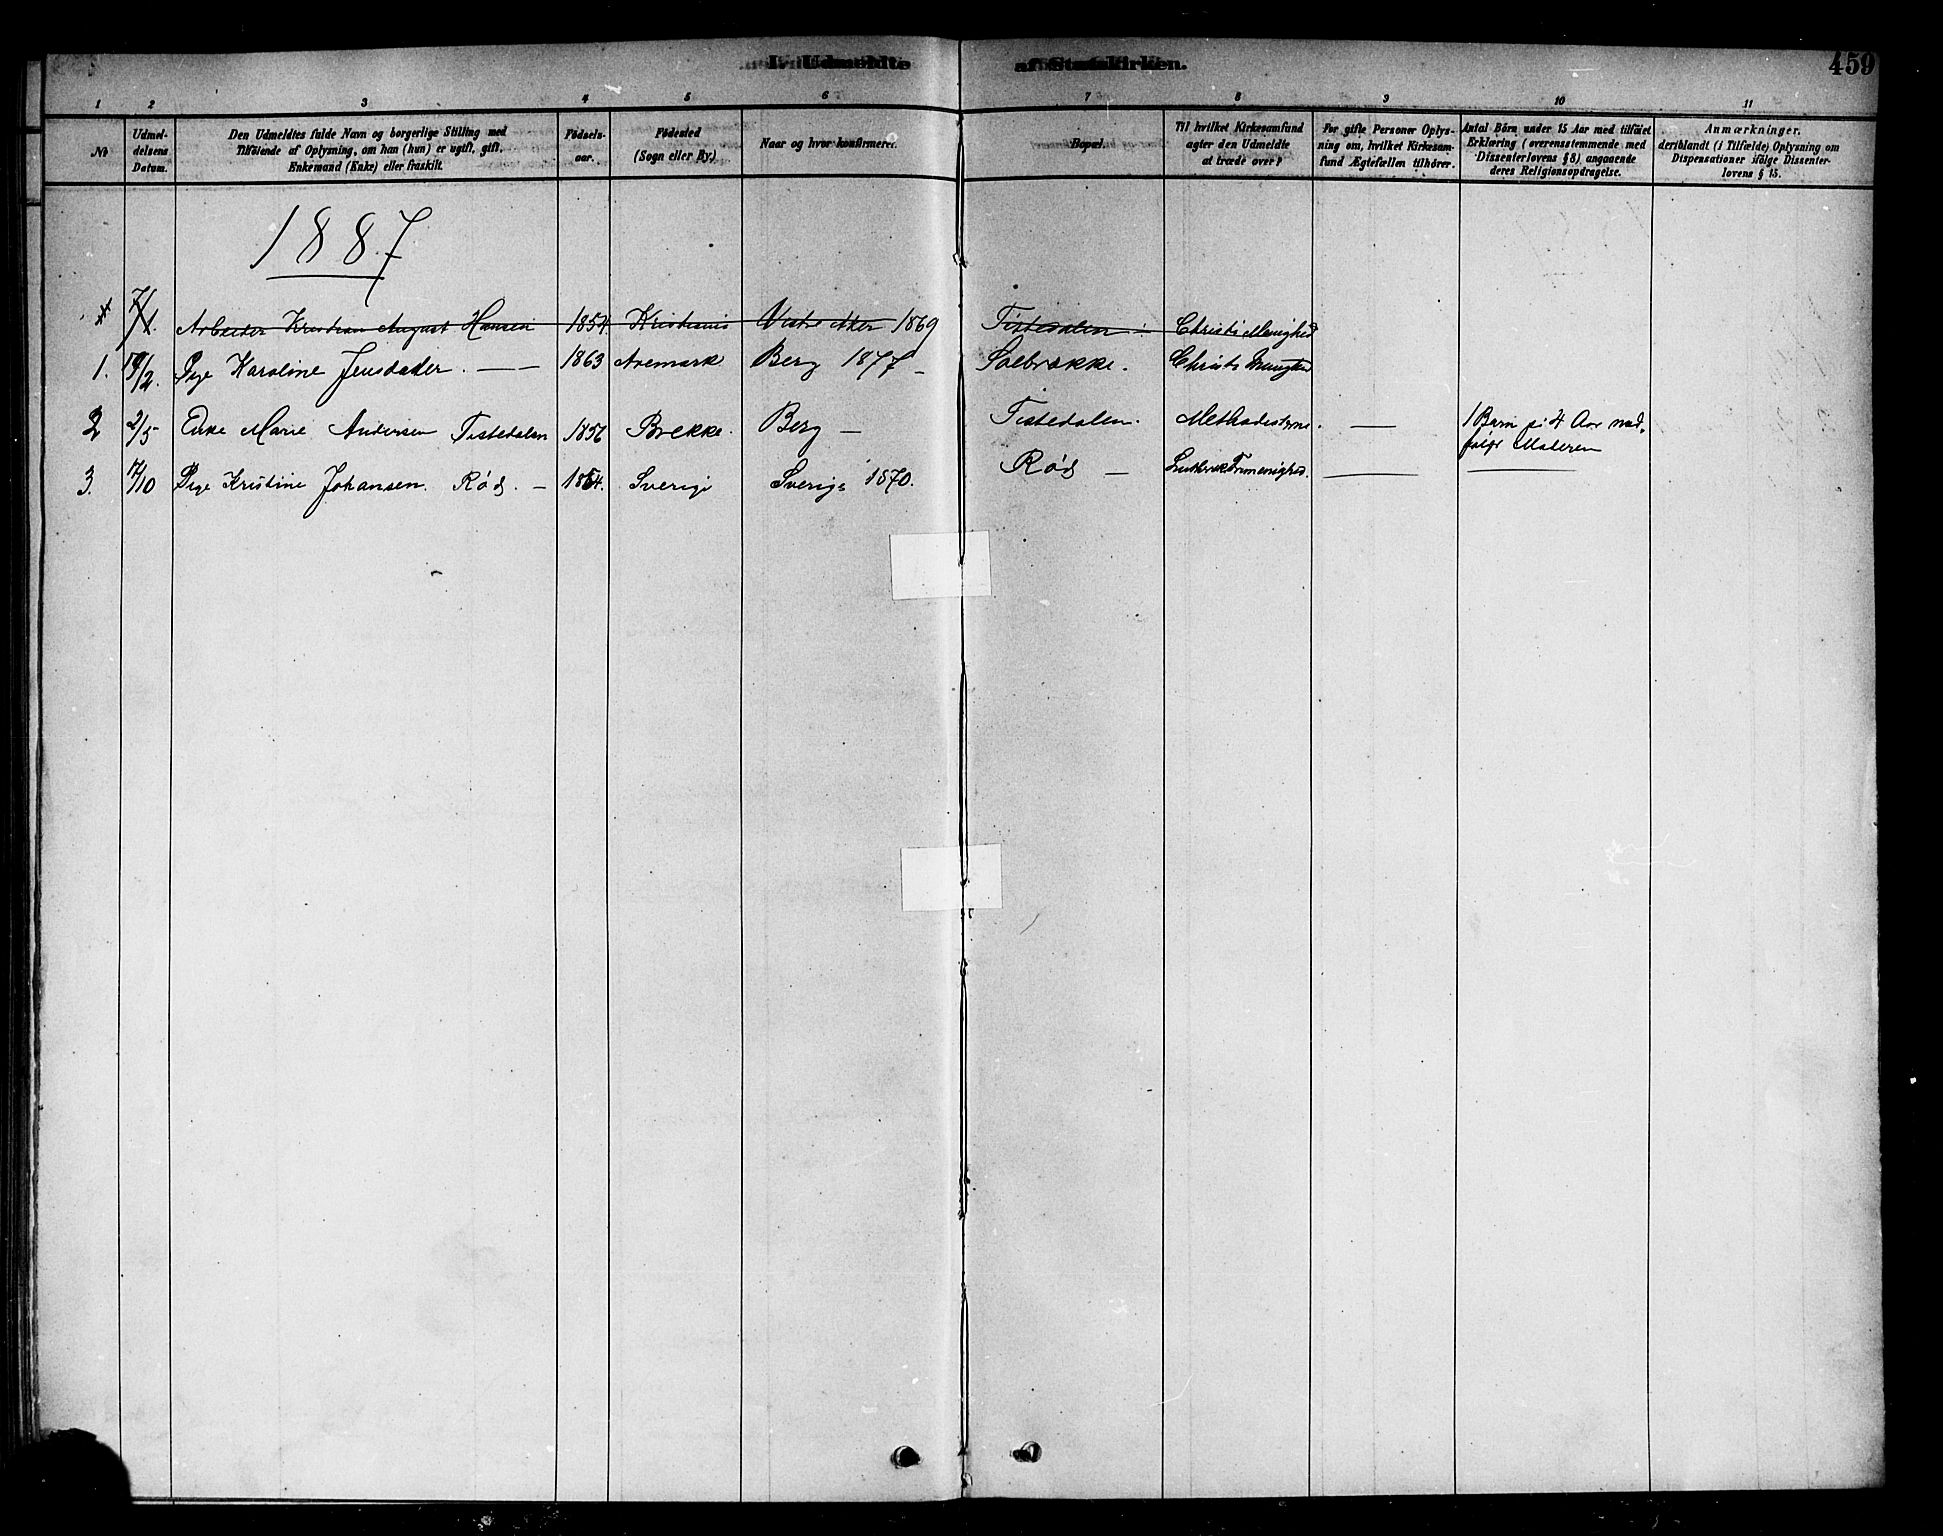 L. Udmeldte af Statskirken.
459
1 2 3 4 5 6 7 8 9 10 11
No
Udmel-
delsens
Datum.
Den Udmeldtes fulde Navn og borgerlige Stilling med
Tilföiende af Oplysning, om han (hun) er ugift, gift,
Enkemand (Enke) eller fraskilt.
Födsels-
aar.
Födested
(Sogn eller By.)
Naar og hvor konfirmeret.
Bopæl.
Til hvilket Kirkesamfund
agter den Udmeldte
at træde over?
For gifte Personer Oplys-
ning om, hvilket Kirkesam-
fund Ægtefællen tilhörer.
Antal Börn under 15 Aar med tilföiet
Erklæring (overensstemmende med
Dissenterlovens § 8) angaaende
deres Religionsopdragelse.
Anmærkninger,
deriblandt (i Tilfælde) Oplysning om
Dispensationer ifölge Dissenter-
lovens § 15.
1887
7/1. Arbeider Kristian August Hansen 1854 Kristiania Vestre Aker 1869 Tistedalen Christi Menighed
1. 19/2. Pige Karoline Jensdatter. — 1863 Aremark Berg 1877 – Solbrække. Christi Menighed
2 2/5 Enke Marie Andersen Tistedalen 1856 Brekke. Berg — Tistedalen. Methodisterne. — 1 Barn på 4 Aar med-
følger Moderen
3. 17/10 Pige Kristine Johansen. Röd. – 1854. Sverige Sverige 1870. Röd — Luthersk Frimenighed. —